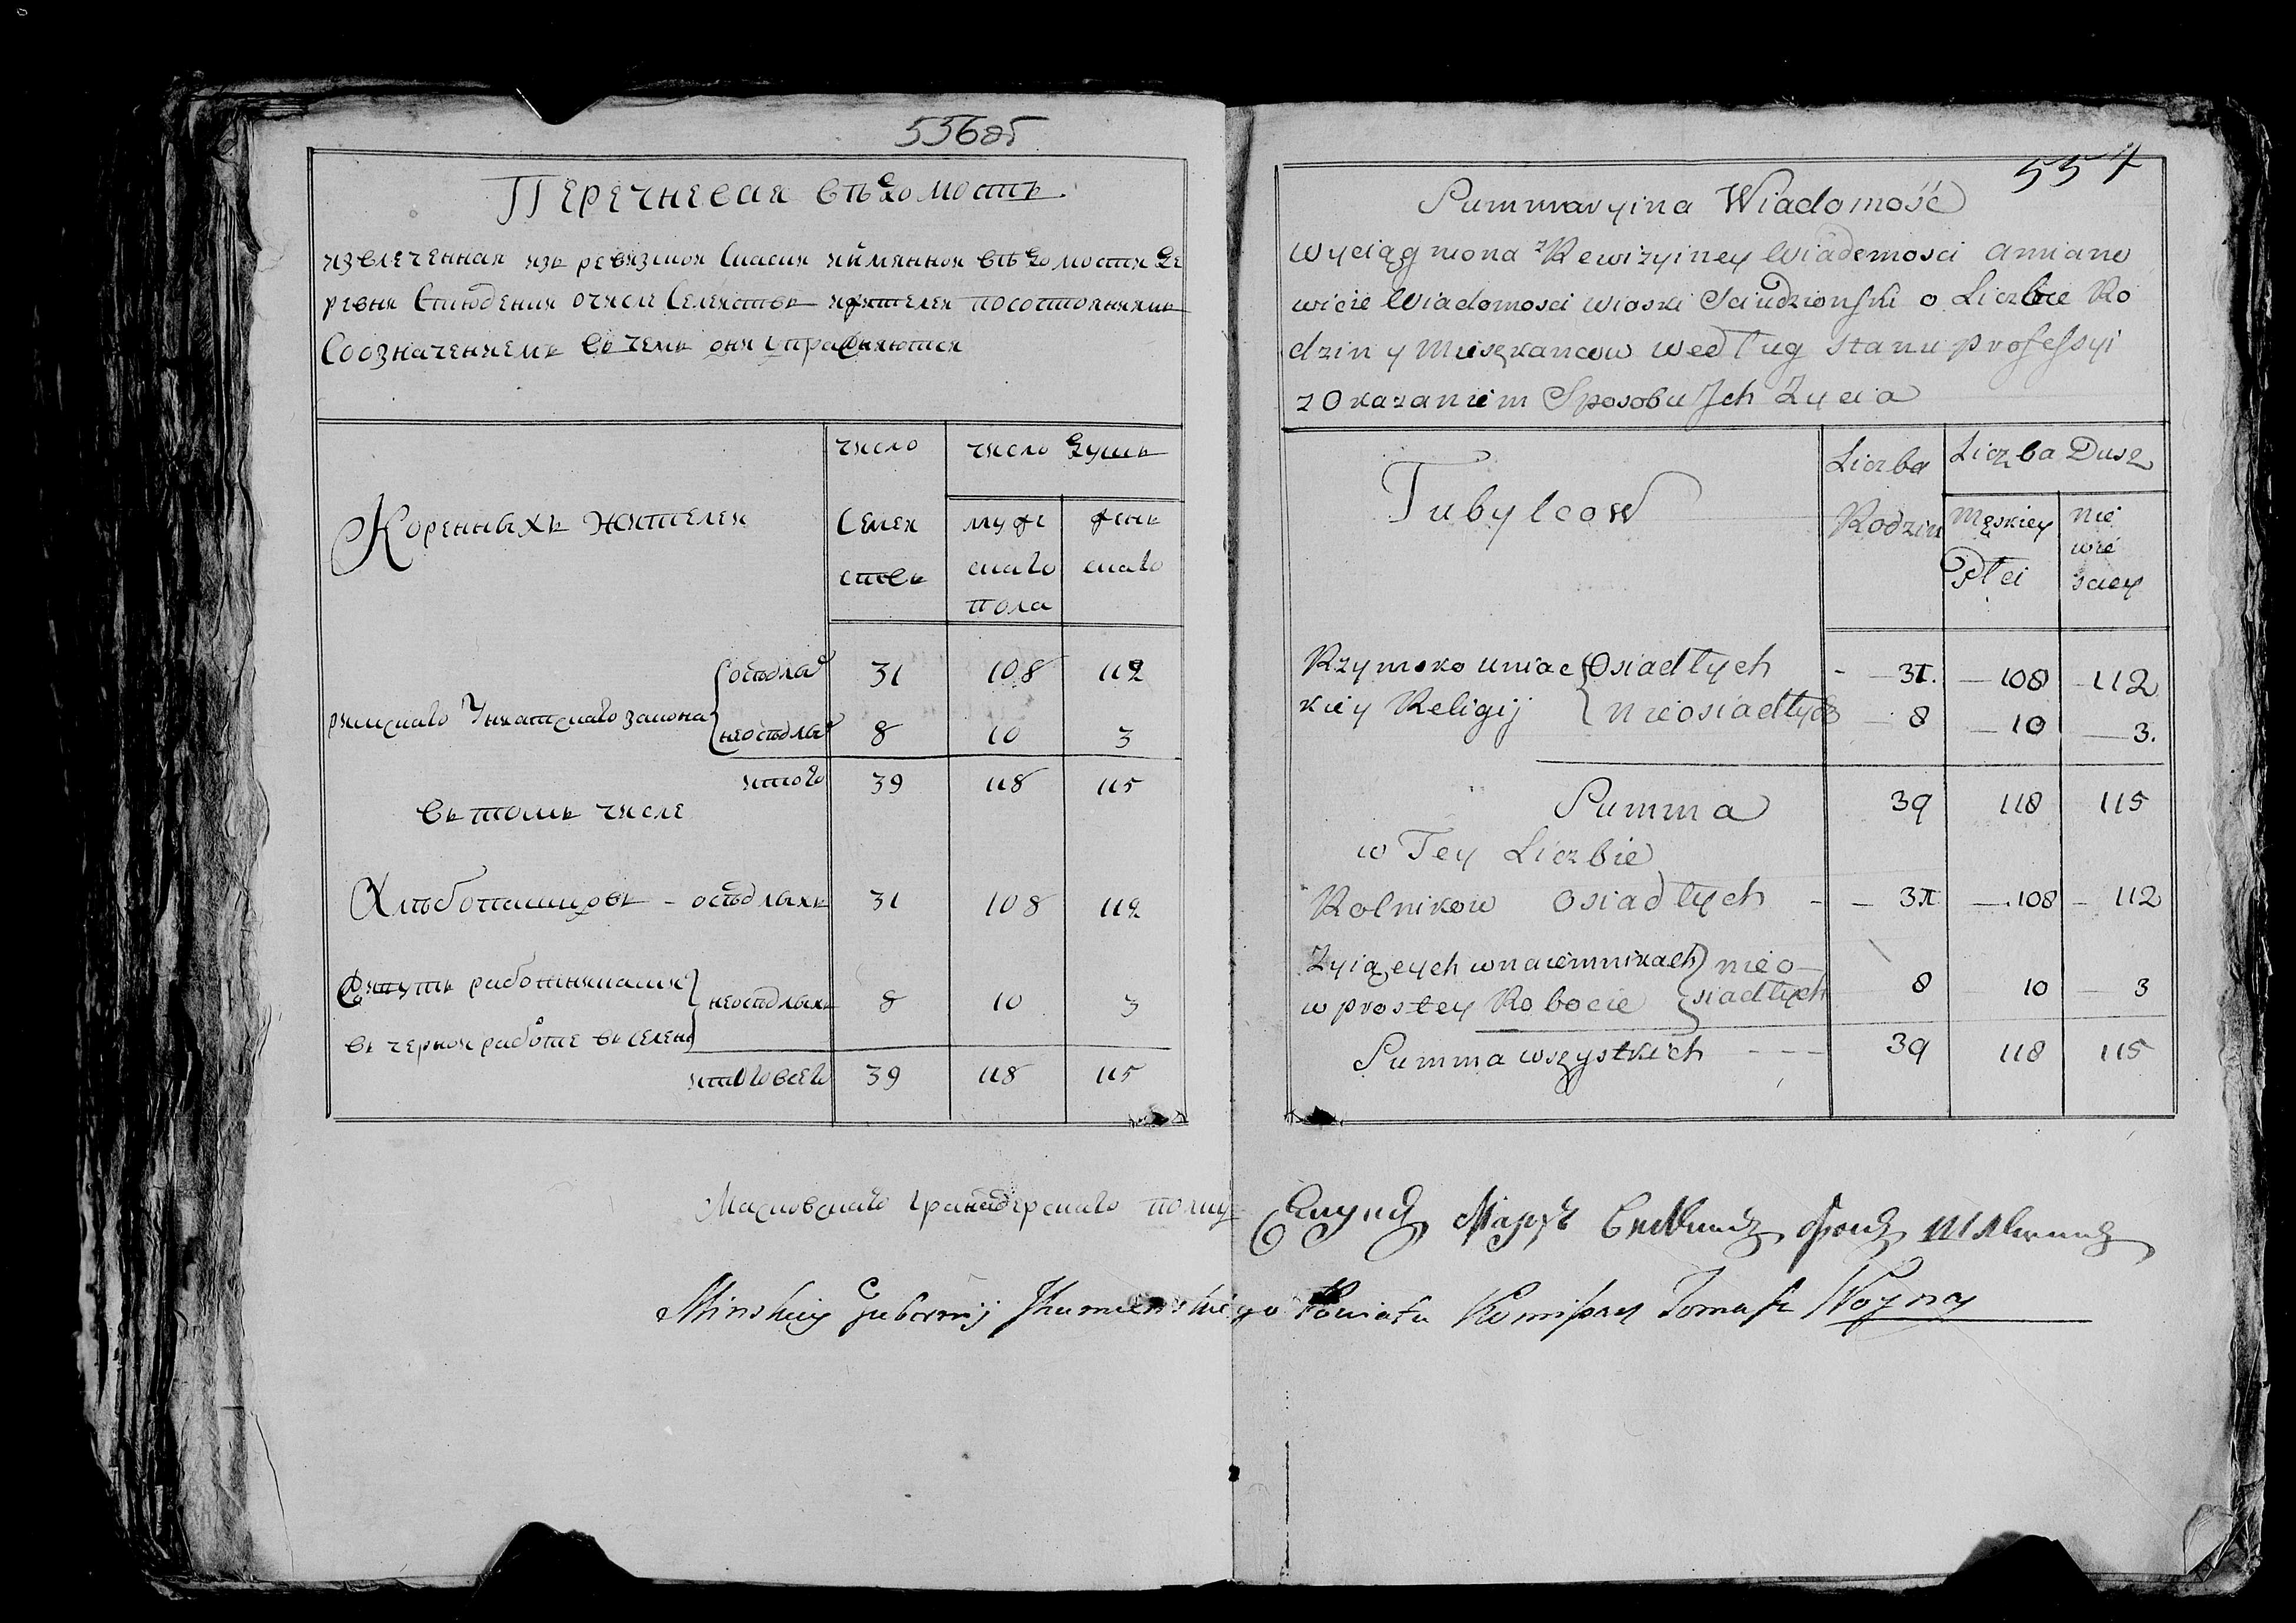 556об
Перечневая вѣдомость
извлеченная изъ ревизкои Скаски имяннои вѣдомости де
ревни Стюдения о числе Семействъ и жителеи по состояниямъ
Сообозначениемъ въ чемъ они упражняются
Коренныхъ жителеи
число
Семеи
ствъ
число душъ
муже
скаго
пола
женъ
скаго
римскаго Униатскаго закона
осѣдлых 31 108 112
неосѣдлых 8 10 3
итого 39 118 115
въ томъ числе
Хлѣбопашцовъ - осѣдлыхъ 31 108 112
работниками
неосѣдлыхъ 8 10 3
въ чернои работе въ селени
итого всего 39 118 115
557
Summaryina Wiadomość
wyciągniona z Rewizyiney Wiadomosci amiano
wicie Wiadomosci wioski Sciudzionski o Liczbie Ro
dzin y Mieszkancow według stanu professyi
z Okazaniem Sposobu Jch Zycia
Tubylcow
Liczba
Rodzin
Liczba Dusz
Męskiey
Płci
nie
wie
sciey
Rzymsko uniac Osiadłych - 31. 108 112
kiey Religij nieosiadłych 8 10 3.
Summa 39 118 115
w Tey Liczbie
Rolnikow Osiadłych - - 31 108 112
Zyiących w naiemnikach nieo
w prostey Robocie siadłych 8 10 3
Summa wszystkich - - - 39 118 115
Московскаго гранадерскаго полку
Minskiey Gubernij Jhumenskiego Powiatu Komisarz Tomasz Woyna